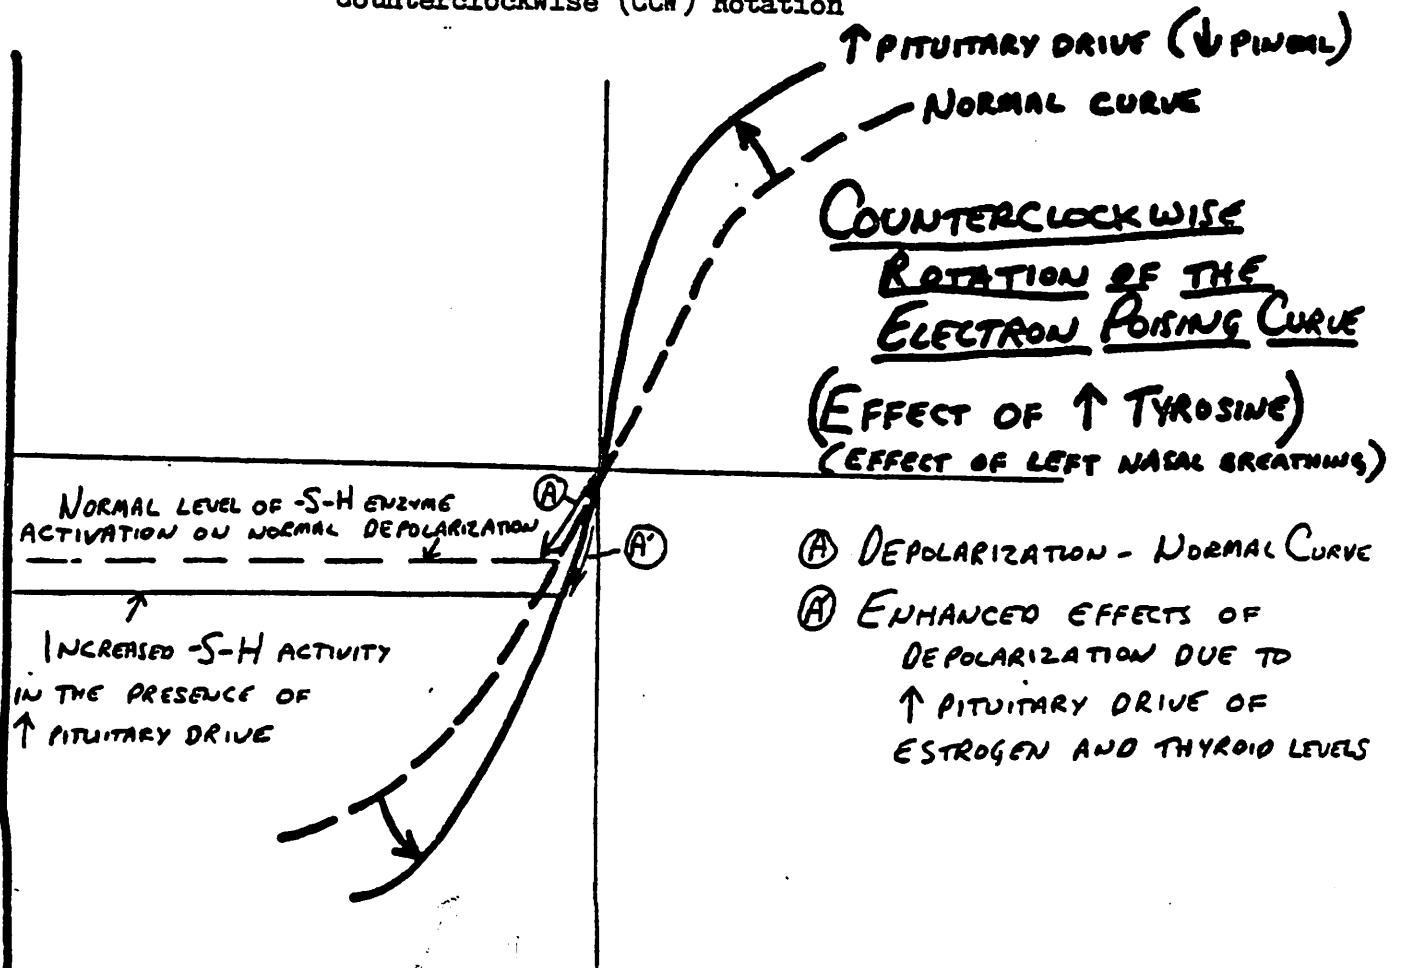 Counterclockwise (CCW) Rotation
↑ PITUITARY DRIVE (↓ PINEAL)
NORMAL CURVE
COUNTERCLOCKWISE
ROTATION OF THE
ELECTRON POISING CURVE
(EFFECT OF ↑ TYROSINE)
(EFFECT OF LEFT NASAL BREATHING)
NORMAL LEVEL OF -S-H ENZYME
ACTIVATION ON NORMAL DEPOLARIZATION
A
A'
INCREASED -S-H ACTIVITY
IN THE PRESENCE OF
↑ PITUITARY DRIVE
A DEPOLARIZATION - NORMAL CURVE
A' ENHANCED EFFECTS OF
DEPOLARIZATION DUE TO
↑ PITUITARY DRIVE OF
ESTROGEN AND THYROID LEVELS